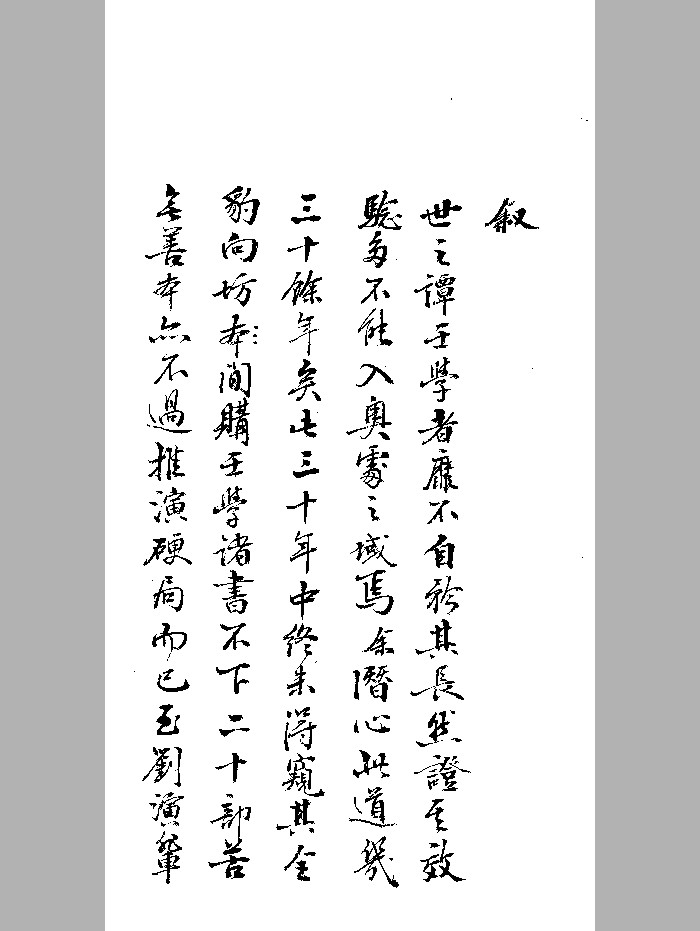 叙
世之譚壬學者靡不自矜其長然證其效
騐多不能入奥䆳之域焉余潛心此道幾
三十餘年矣此三十年中終未得窺其全
豹向坊本間購壬學諸書不下二十部苦
無善本亦不過推演硬局而已至劉演輩